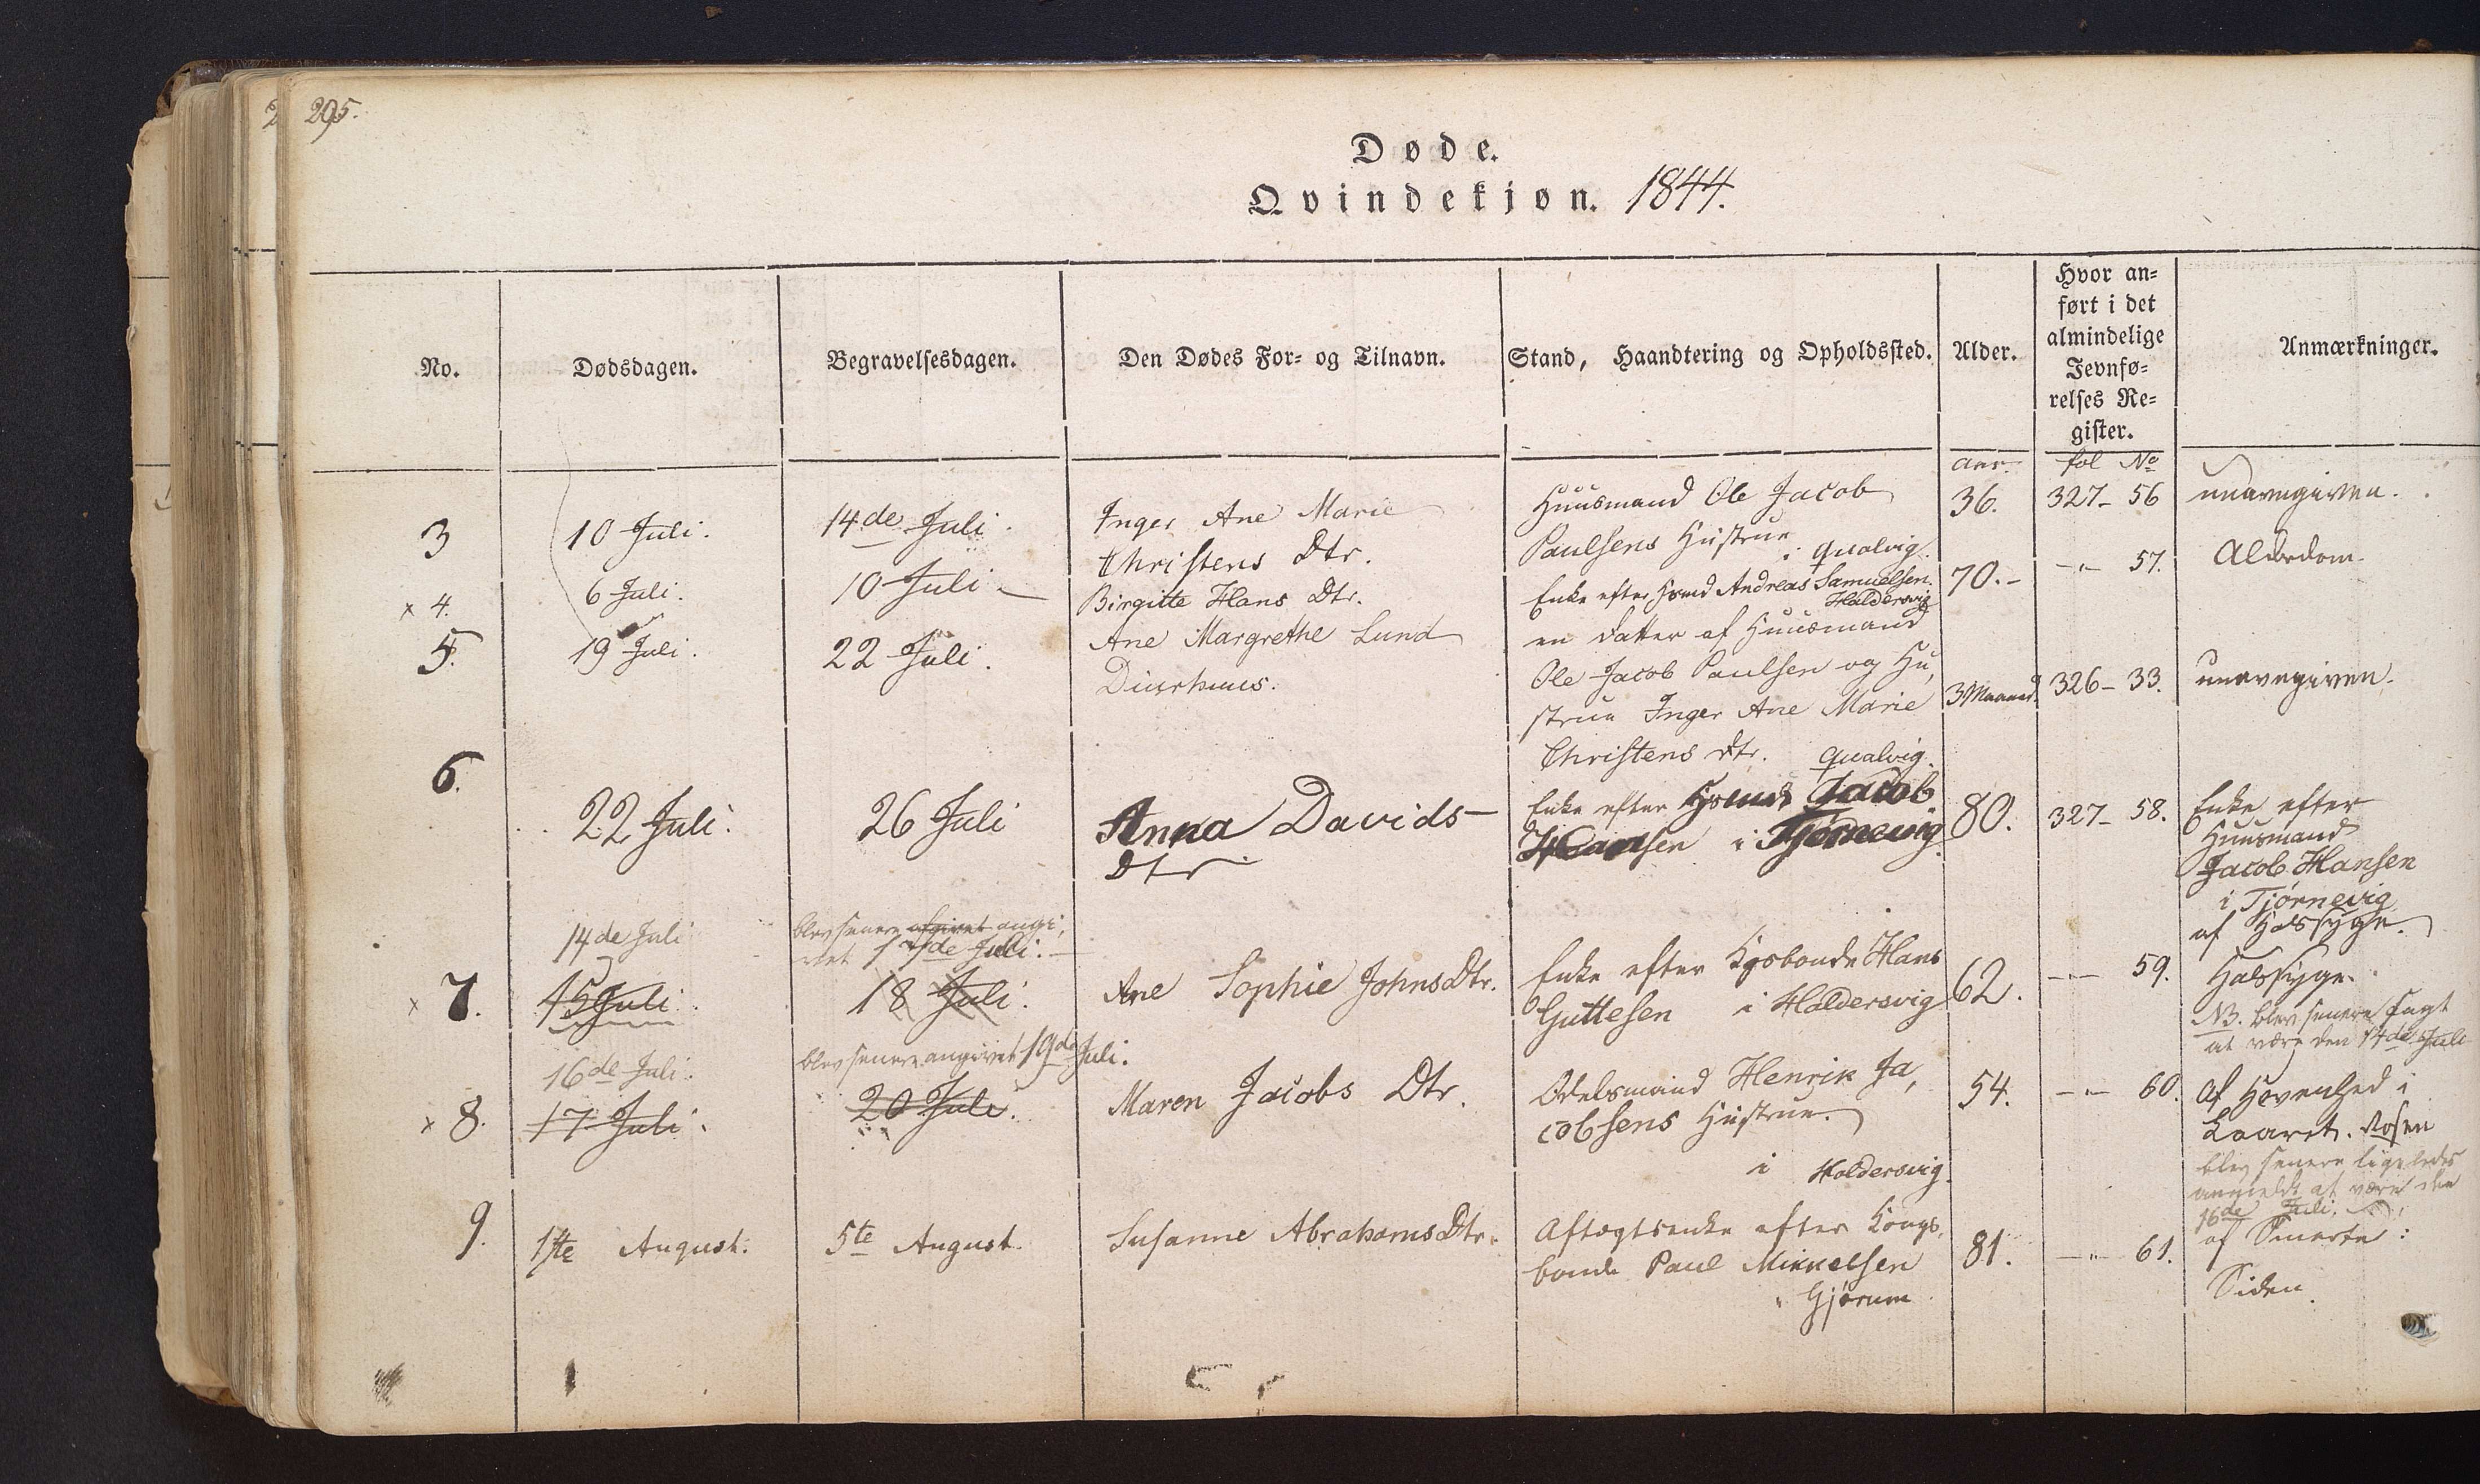 295.
Døde.
Qvindekjøn. 1844.
No.
Dødsdagen.
Begravelsesdagen.
Den Dødes For- og Tilnavn.
Stand, Haandtering og Opholdssted.
Alder.
Hvor an-
ført i det
almindelige
Jevnfø-
relses Re-
gister.
Anmærkninger.
aar.
fol No
3
10 Juli.
14de Juli.
Inger Ane Marie
Christens Dtr.
Huusmand Ole Jacob
Paulsens Hustrue
i Qvalvig.
36.
327- 56
unavngiven.
x 4.
6 Juli.
10 Juli
Birgitte Hans Dtr.
Enke efter Hsmd Andreas Samuelsen.
Haldersvig
70.-
-"- 57.
Alderdom.
5.
19 Juli.
22 Juli.
Ane Margrethe Lund
Diurhuus.
en Datter af Huusmand
Ole Jacob Paulsen og Hu,
strue Inger Ane Marie
Christens Dtr. Qvalvig.
3 Maaned.
326- 33.
unavngiven.
6.
22 Juli.
26 Juli
Anna Davids-
Dtr
Enke efter Hsmd Jacob
Hansen i Tjørnevig
80.
327- 58.
Enke efter
Huusmand
Jacob Hansen
i Tjørnevig
af Halssyge.
x 7.
14de Juli
15 Juli
blev senere afgivet angi,
vet 17de Juli.
18 Juli.
Ane Sophie JohnsDtr.
Enke efter Kgsbonde Hans
Guttesen i Haldersvig
62.
-"- 59.
Halssyge.
NB. blev senere sagt
at være den 14de Juli
x 8.
16de Juli.
17 Juli.
blev senere angivet 19de Juli.
20 Juli.
Maren Jacobs Dtr.
Odelsmand Henrik Ja,
cobsens Hustrue.
i Haldersvig.
54.
-"- 60.
af Hævenhed i
Laaret. Rosen
blev senere ligeledes
anmeldt at være den
16de Juli.
9.
1ste August.
5te August.
Susanne AbrahamsDtr.
Aftægtsenke efter Kongs,
bonde Paul Mikkelsen
Gjørum
81.
-"- 61.
af Smerte i
Siden.